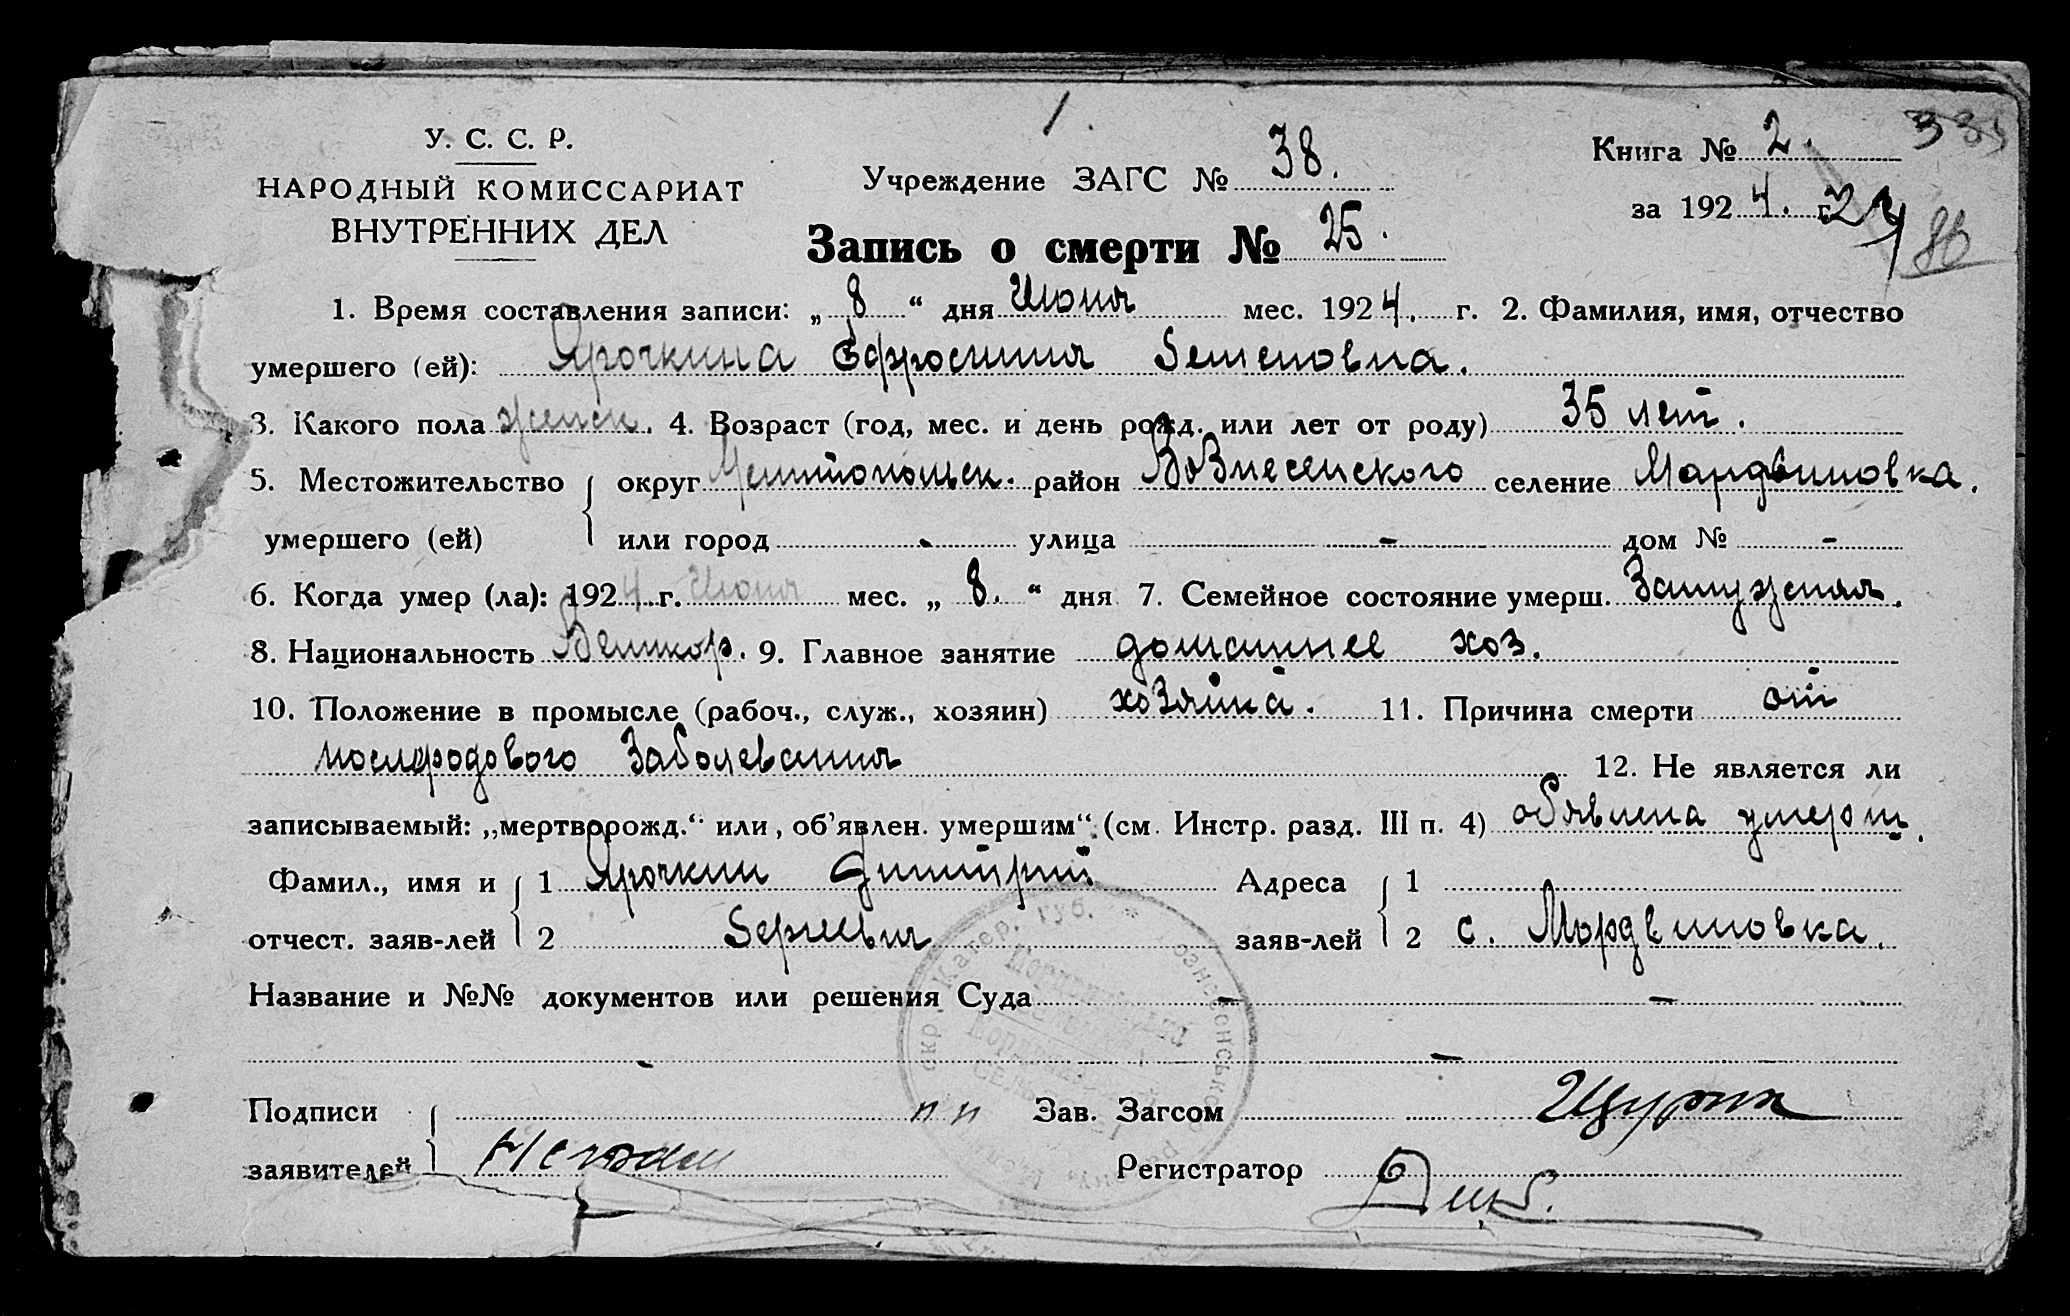 1.
У. С. С. Р.
НАРОДНЫЙ КОМИССАРИАТ
ВНУТРЕННИХ ДЕЛ
Учреждение ЗАГС № 38.
Книга № 2.
за 1924. г.
Запись о смерти № 25.
1. Время составления записи: „8“ дня Июня мес. 1924. г. 2. Фамилия, имя, отчество
умершего (ей): Ярочкина Ефросиния Семеновна.
3. Какого пола женск. 4. Возраст (год, мес. и день рожд. или лет от роду) 35 лет.
5. Местожительство округ Мелитопольск. район Вознесенского селение Мардвиновка.
умершего (ей) или город - улица - дом № -
6. Когда умер (ла): 1924 г. Июня мес. „8.“ дня 7. Семейное состояние умерш. Замужняя.
8. Национальность Великор. 9. Главное занятие домашнее хоз.
10. Положение в промысле (рабоч., служ., хозяин) хозяйка. 11. Причина смерти от
послеродового заболевания 12. Не является ли
записываемый: „мертворожд.“ или, об'явлен. умершим“ (см. Инстр. разд. III п. 4) обявлена умерш.
Фамил., имя и 1 Ярочкин Димитрий Адреса 1
отчест. заяв-лей 2 Сергиевич заяв-лей 2 с. Мордвиновка.
Название и №№ документов или решения Суда - -
- -
Подписи пп Зав. Загсом Щурик
заявителей Регистратор